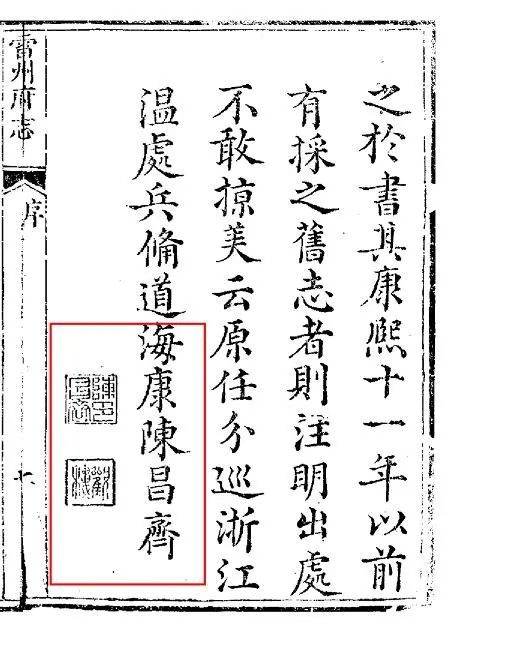 之於書其康熙十一年以前
有採之舊志者則注明出處
不敢掠美云原任分巡浙江
温處兵備道海康陳昌齊
雷州府志
序